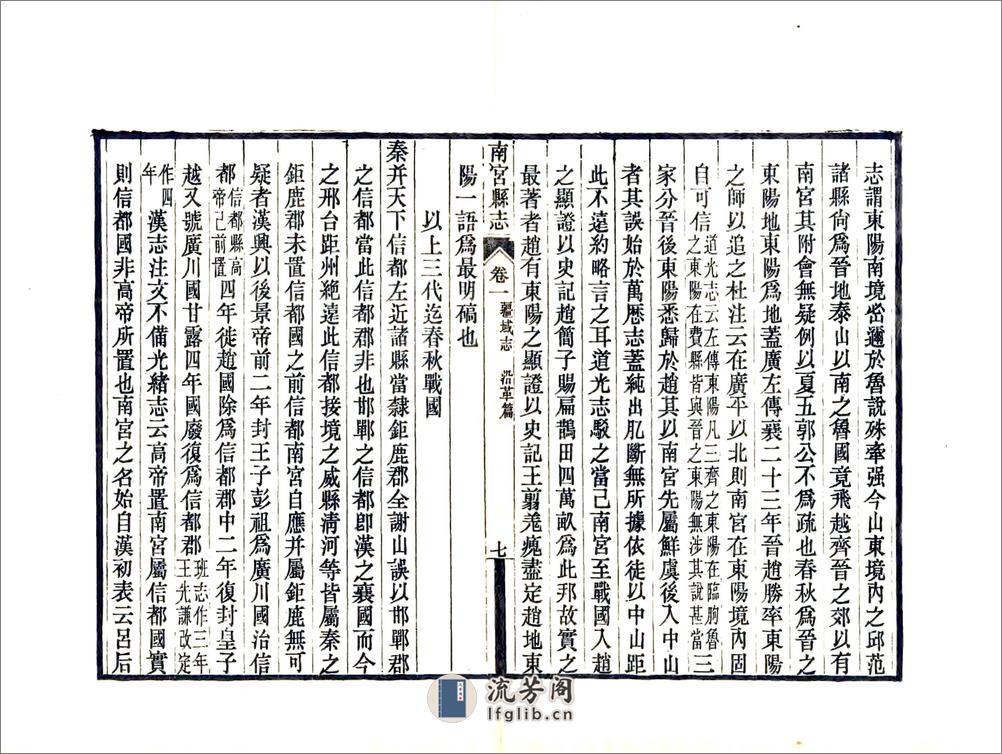 志謂東陽南境密邇於魯說殊牽强今山東境內之邱范
諸縣尙爲晉地泰山以南之魯國竟飛越齊晉之郊以有
南宮其附會無疑例以夏五郭公不爲疏也春秋爲晉之
東陽地東陽爲地蓋廣左傳襄二十三年晉趙勝率東陽
之師以追之杜注云在廣平以北則南宮在東陽境內固
自可信道光志云左傳東陽凡三齊之東陽在臨朐魯之東陽在費縣皆與晉之東陽無涉其說甚當三
家分晉後東陽悉歸於趙其以南宮先屬鮮虞後入中山
者其誤始於萬歷志蓋純出肊斷無所據依徒以中山距
此不遠約略言之耳道光志駁之當已南宮至戰國入趙
之顯證以史記趙簡子賜扁鵲田四萬畝爲此邦故實之
最著者趙有東陽之顯證以史記王翦羌瘣盡定趙地東
南宮縣志 卷一 疆域志 沿革篇 七
陽一語爲最明碻也
以上三代迄春秋戰國
秦并天下信都左近諸縣當隸鉅鹿郡全謝山誤以邯鄲郡
之信都當此信都郡非也邯鄲之信都卽漢之襄國而今
之邢台距州絶遠此信都接境之威縣淸河等皆屬秦之
鉅鹿郡未置信都國之前信都南宮自應并屬鉅鹿無可
疑者漢興以後景帝前二年封王子彭祖爲廣川國治信
都信都縣高帝已前置四年徙趙國除爲信都郡中二年復封皇子
越又號廣川國甘露四年國廢復爲信都郡班志作三年王先謙改定
作四年漢志注文不備光緖志云高帝置南宮屬信都國實
則信都國非高帝所置也南宮之名始自漢初表云呂后
流芳阁
lfglib.cn